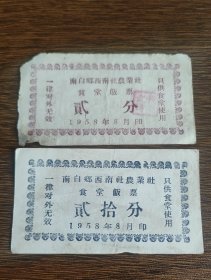 南白鄉西南社農業社
食堂飯票
貳分
1958年8月印
一律对外无效
只供食堂使用
南白鄉西南社農業社
食堂飯票
貳拾分
1958年8月印
一律对外无效
只供食堂使用